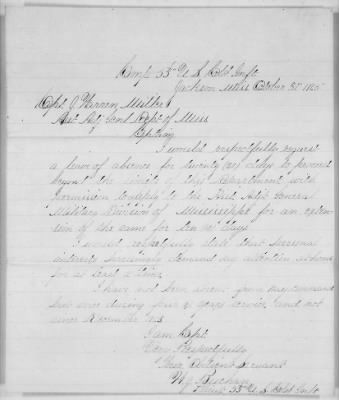 Camp 55th U S Cold Inft
Jackson Miss October 31st 1865
Capt J. Warren Miller
Asst Adj Genl Dept of Miss
Captain
I would respectfully request
a leave of absence for twenty (20) days to proceed
beyond the limits of this Department with
permission to apply to the Asst Adjt General
Military Division of Mississippi for an exten-
sion of the same for ten days
I would respectfully state that personal
interests seriously demand my attention at home
for at least a time.
I have not been absent from my command
but once during four years service and not
since December
I am Capt
Very Respectfully
Your Obedient Servant
55th U S Cold Inft